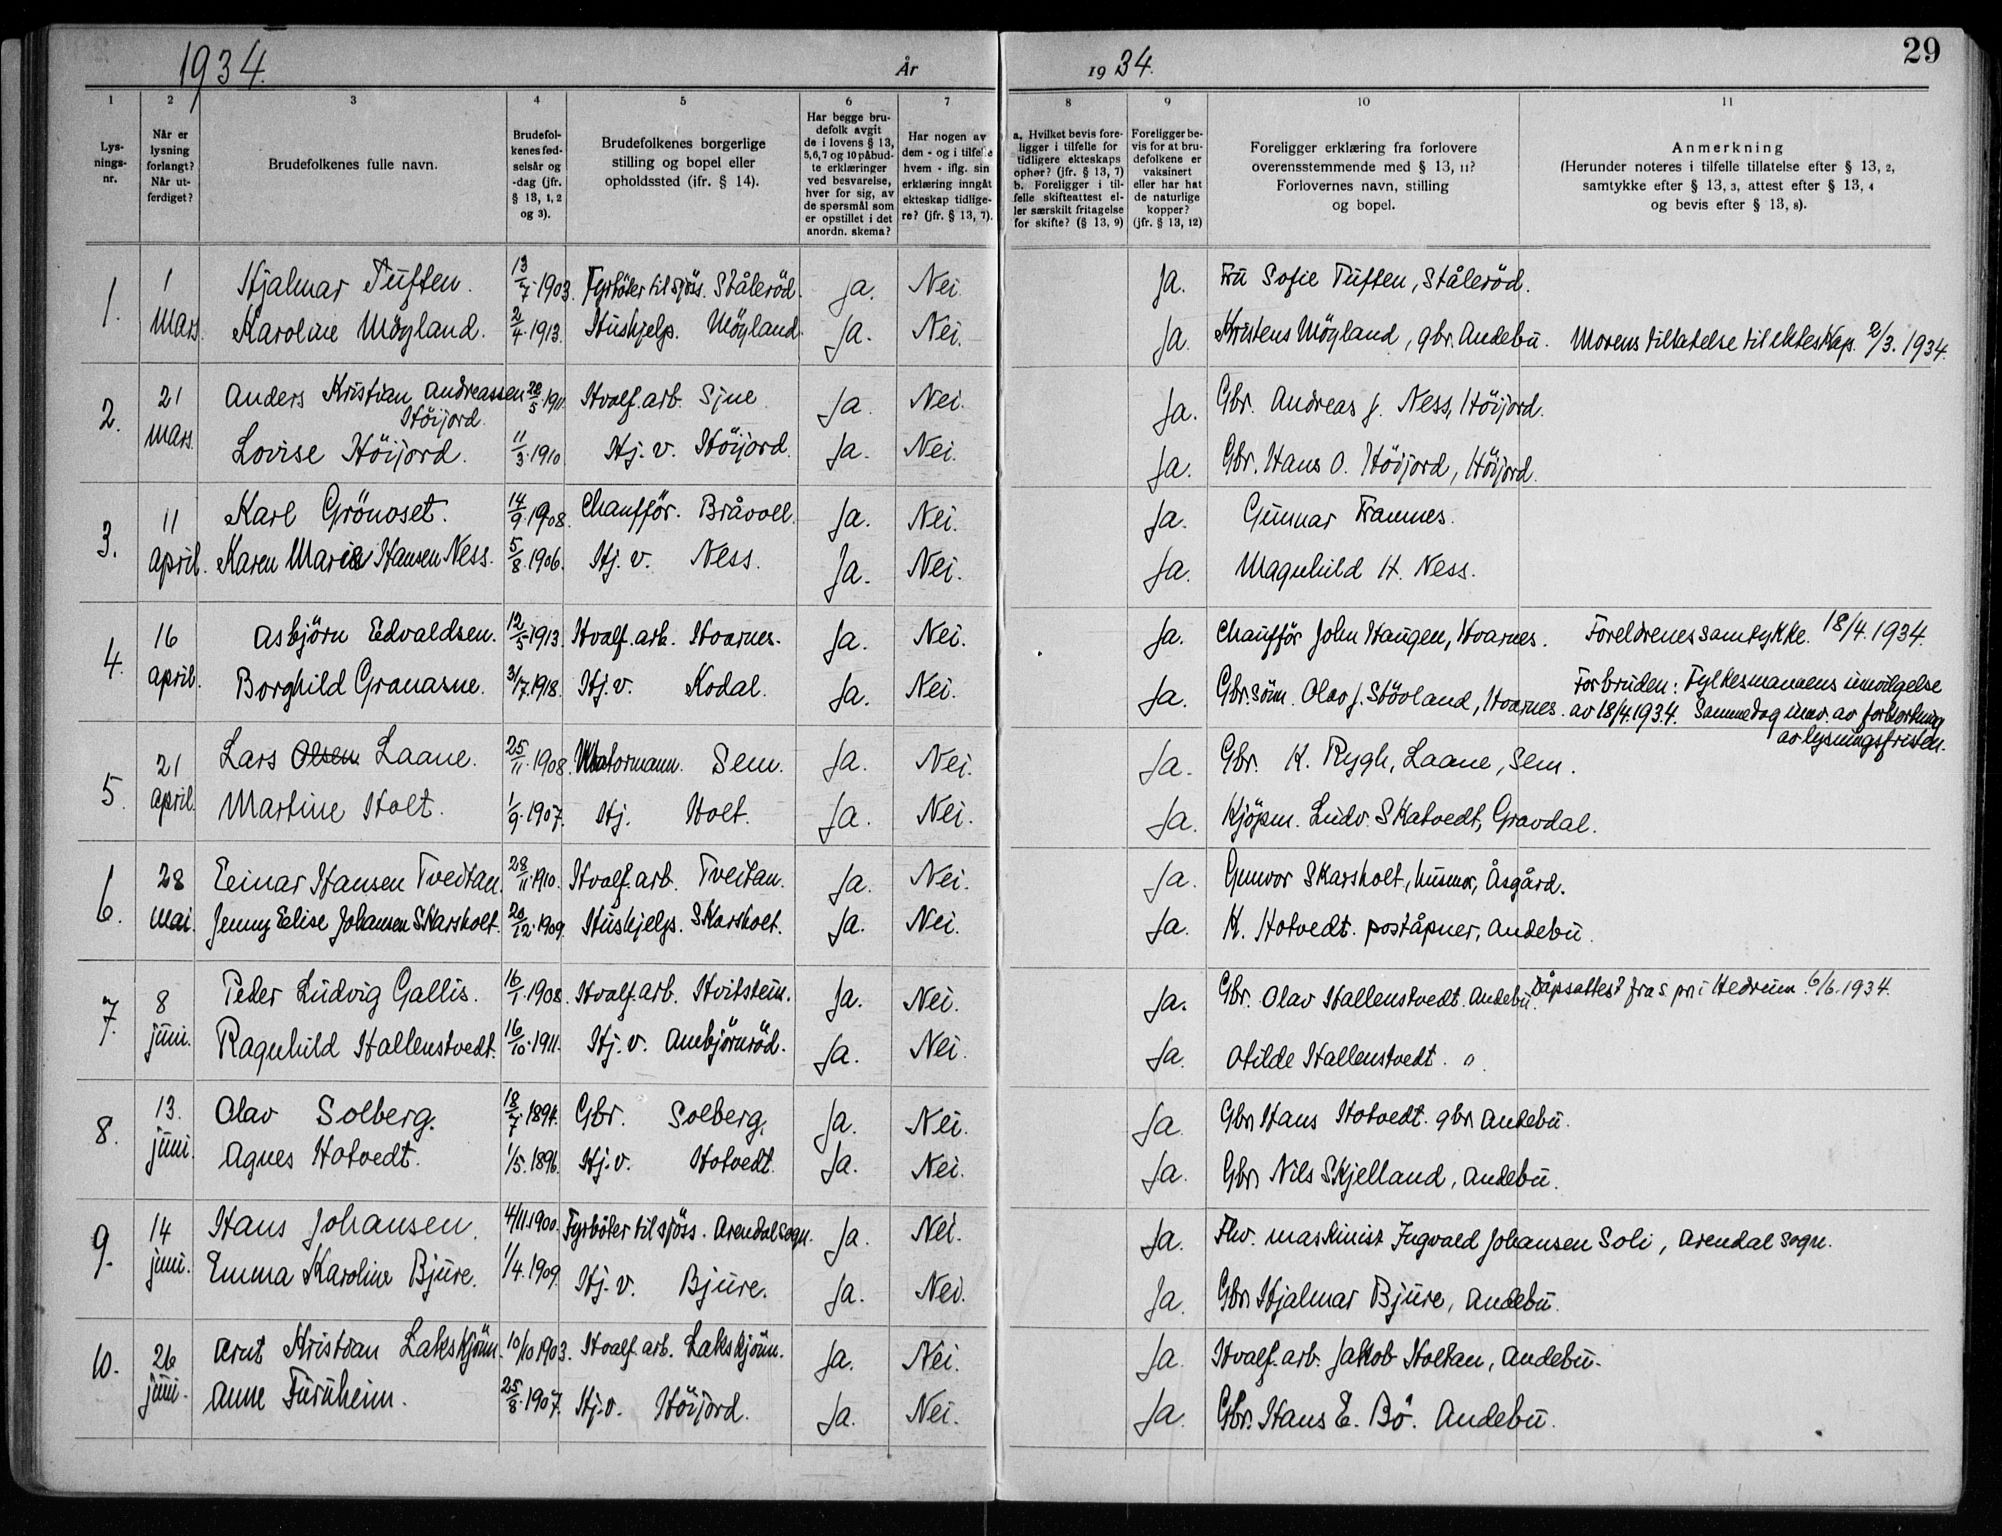 1934.
År
19 34.
29
1
2
3
4
5
6
7
8
9
10
11
Lys-
nings-
nr.
Når er
lysning
forlangt?
Når ut-
ferdiget?
Brudefolkenes fulle navn.
Brudefol-
kenes fød-
selsår og
-dag (jfr.
§ 13, 1, 2
og 3).
Brudefolkenes borgerlige
stilling og bopel eller
opholdssted (ifr. § 14).
Har begge bru-
defolk avgit
de i lovens § 13,
5,6,7 og 10 påbud-
te erklæringer
ved besvarelse,
hver for sig, av
de spørsmål som
er opstillet i det
anordn. skema?
Har nogen av
dem - og i tilfelle
hvem - iflg. sin
erklæring inngåt
ekteskap tidlige-
re? (jfr. § 13, 7).
a. Hvilket bevis fore-
ligger i tilfelle for
tidligere ekteskaps
ophør? (jfr. § 13, 7)
b. Foreligger i til-
felle skifteattest el-
ler særskilt fritagelse
for skifte? (§ 13, 9)
Foreligger be-
vis for at bru-
defolkene er
vaksinert
eller har hat
de naturlige
kopper?
(jfr. § 13, 12)
Foreligger erklæring fra forlovere
overensstemmende med § 13, 11?
Forlovernes navn, stilling
og bopel.
Anmerkning
(Herunder noteres i tilfelle tillatelse efter § 13, 2,
samtykke efter § 13, 3, attest efter § 13, 4
og bevis efter § 13, 8).
1. 1 Mars. Hjalmar Tuften. 13/7.1903. Fyrböter til sjöss. Ståleröd. Ja. Nei. Ja. Fru Sofie Tuften, Ståleröd.
Karoline Mögland. 2/4.1913. Hushjelp. Mögland. Ja. Nei. Ja. Kristens Mögland, gbr. Andebu. Morens tillatelse til ekteskap. 2/3.1934.
2. 21 mars. Anders Kristian Andreassen 28/5.1911. Hvalf.arb. Sjue Ja. Nei. Ja. Gbr. Andreas J. Ness, Höijord.
Höijord.
Lovise Höijord. 11/3.1910 Hj. v. Höijord. Ja. Nei. Ja. Gbr. Hans O. Höijord, Höijord.
3. 11 april. Karl Grönoset. 14/9.1908. Chafför. Bråvoll. Ja. Nei. Ja. Gunnar Framnes.
Karen Marie Hansen Ness. 5/8.1906. Hj. v. Ness. Ja. Nei. Ja. Magnhild H. Ness.
4. 16 april. Asbjörn Edvaldsen. 12/5.1913. Hvalf.arb. Hvarnes. Ja. Nei. Ja. Chafför John Haugen, Hvarnes. Foreldrenes samtykke. 18/4.1934.
Borghild Granasne. 3/7.1918. Hj. v. Kodal. Ja. Nei. Ja. Gbr.sönn. Olav J. Stövland, Hvarnes. For bruden: Fylkesmannens innvilgelse
av 18/4.1934. Samme dag innv. av forkortning
av lysningsfristen.
5. 21 april. Lars Olsen Laane. 25/11.1908. Matormann. Sem. Ja. Nei. Ja. Gbr. K. Rygh, Laane, Sem.
Martine Holt. 1/9.1907. Hj. Holt. Ja. Nei. Ja. Kjöpm. Ludv. Skatvedt, Gravdal.
6. 28 mai. Einar Hansen Tveitan. 28/11.1910. Hvalf.arb. Tveitan. Ja. Nei. Ja. Gunvor Skarsholt, husmor, Åsgård.
Jenny Elise Johansen Skarsholt. 20/12.1909. Hushjelp. Skarsholt. Ja. Nei. Ja. K. Hotvedt. poståpner, Andebu.
7. 8 juni. Peder Ludvig Gallis. 16/1.1908. Hvalf.arb. Hvitstein. Ja. Nei. Ja. Gbr. Olav Hallenstvedt. Andebu. Dåpsattest fra s.pr. i Hedrum. 6/6.1934.
Ragnhild Hallenstvedt. 16/10.1911. Hj. v. Ambjörnröd. Ja. Nei. Ja. Otilde Hallenstvedt. "
8. 13. juni. Olav Solberg. 18/7.1894. Gbr. Solberg. Ja. Nei. Ja. Gbr. Hans Hotvedt. gbr. Andebu.
Agnes Hotvedt. 1/5.1896. Hj. v. Hotvedt. Ja. Nei. Ja. Gbr. Nils Skjelland, Andebu.
9. 14 juni. Hans Johansen. 4/11.1900. Fyrböter til sjöss. Arendal sogn. Ja. Nei. Ja. Fhv. maskinist Ingvald Johansen Soli, Arendal sogn.
Emma Karoline Bjure. 1/4.1909. Hj. v. Bjure. Ja. Nei. Ja. Gbr. Hjalmar Bjure, Andebu.
10. 26 juni. Arnt Kristian Lakskjönn. 10/10 1903. Hvalf.arb. Lakskjönn. Ja. Nei. Ja. Hvalf.arb. Jakob Holtan, Andebu.
Anne Furuheim. 25/8.1907. Hj.v. Höijord. Ja. Nei. Ja. Gbr. Hans E. Bö. Andebu.